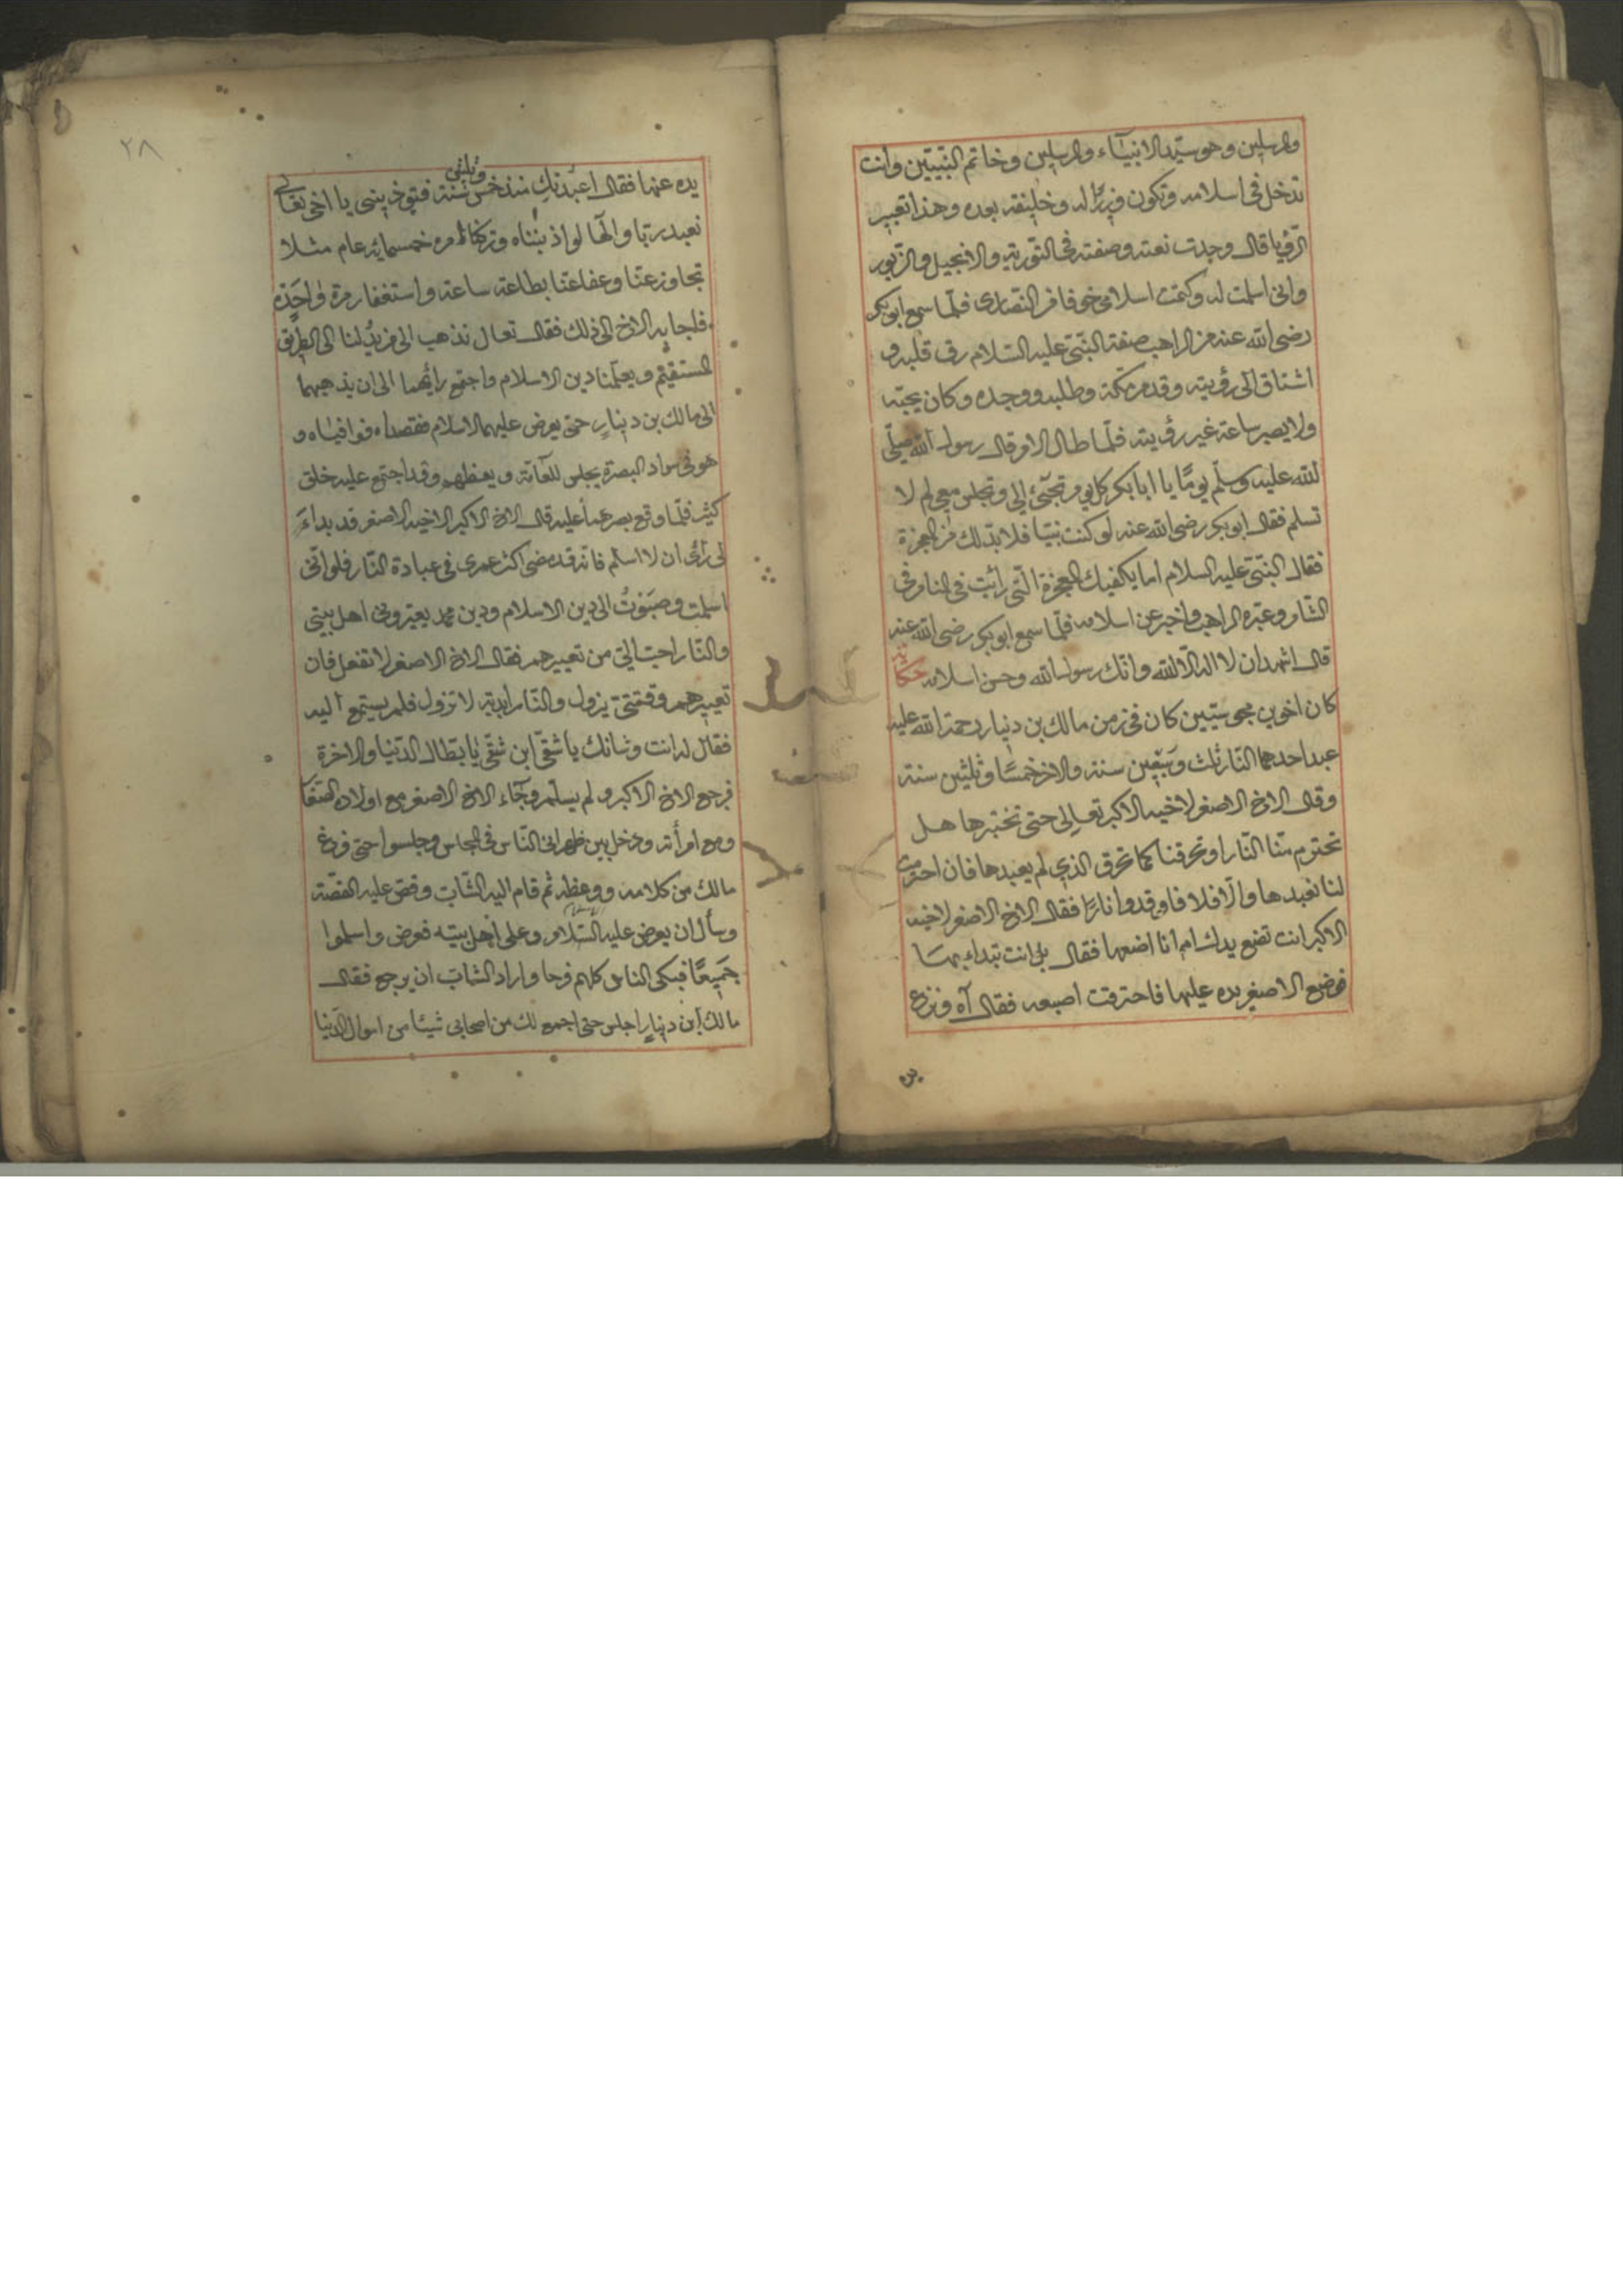 والمرسلين وهو سيّد الانبيآء والمرسلين وخاتم النّبيّين وانت
تدخل في اسلامه وتكون وزيرًا له وخليفته بعده وهذا تعبير
الرّؤيا قال وجدت نعته وصفته في التّورية والانجيل والزّبور
وانى اسلمت له وكتمت اسلامى خوفا من النّصارى فلمّا سمع ابوبكر
رضى الله عنه من الراهب صفة النّبىّ عليه السّلام رق قلبه و
اشتاق الى رؤيته وقدم مكّة وطلبه ووجده وكان يحبّه
ولا يصبر ساعة غير رؤيته فلمّا طال الامر قال رسول الله صلّى
الله عليه وسلّم يومًا يا ابا بكر كل يوم تجىء الى وتجلس معى لم لا
تسلم فقال ابوبكر رضى الله عنه لو كنت نبيّا فلا بدّ لك من المعجزة
فقال النّبىّ عليه السلام اما يكفيك المعجزة الّتى رأيت في المنام في
الشّام وعبّره الراهب واخبر عن اسلامه فلمّا سمع ابوبكر رضى الله عنه
قال اشهد ان لا اله الّا الله وانّك رسول الله وحسن اسلامه حكاية
كان اخوين مجوسيّين كان في زمن مالك بن دينار رحمة الله عليه
عبد احدهما النّار ثلث وسبعين سنة والاخر خمسًا وثلثين سنة
وقال الاخ الاصغر لاخيه الاكبر تعالى حتى نختبرها هل
تحترم منّا النّار او تحرقنا كما تحرق الذي لم يعبدها فان احترمت
لنا نعبدها والّا فلا فاوقدوا نارًا فقال الاخ الاصغر لاخيه
الاكبر انت تضع يدك ام انا اضعها فقال بل انت تبداء بها
فوضع الاصغر يده عليها فاحترقت اصبعه فقال آه ونزع
يده
٢٨
وثلثين
يده عنها فقال اعبدتك منذ خمس سنة فتؤذيننى يا اخى تعالى
نعبد ربّا والهًا لو اذنبناه وتركنا امره خمسمائة عام مثلا
تجاوز عنّا وعفا عنّا بطاعة ساعة واستغفار مرة واحدة
فاجابه الاخ الى ذلك فقال تعال نذهب الى من يدلنا الى الطريق
المستقيم ويعلّمنا دين الاسلام واجتمع رأيهما الى ان يذهبهما
الى مالك بن دينار حتى يعرض عليهما الاسلام فقصداه فوافياه و
هو في سواد البصرة يجلس للعآمّة ويعظهم وقد اجتمع عليه خلق
كثير فلمّا وقع بصرهما عليه قال الاخ الاكبر لاخيه الاصغر قد بداء
لى رأى ان لا اسلم فانه قد مضى اكثر عمرى في عبادة النّار فلو انّى
اسلمت وصبوت الى دين الاسلام ودين محمد يعيّرونى اهل بيتى
والنّار احبّ الىّ من تعييرهم فقال الاخ الاصغر لا تفعل فان
تعييرهم وقتىّ يزول والنّار ابديّة لا تزول فلم يستمع اليه
فقال له انت وشانك يا شقىّ ابن شقىّ يا بطّال الدّنيا والاخرة
فرجع الاخ الاكبر ولم يسلم وجآء الاخ الاصغر مع اولاده الصغار
ومع امرأته ودخل بين ظهرانى النّاس في المجلس وجلسوا حتى فرغ
مالك من كلامه ووعظه ثم قام اليه الشّابّ وقصّ عليه القصّة
وسأل ان يعرض عليه السّلام وعلى اهل بيته فعرض واسلموا
جميعًا فبكى الناس كلهم فرحا واراد الشابّ ان يرجع فقال
مالك ابن دينار اجلس حتى اجمع لك من اصحابى شيئا من اموال الدّنيا